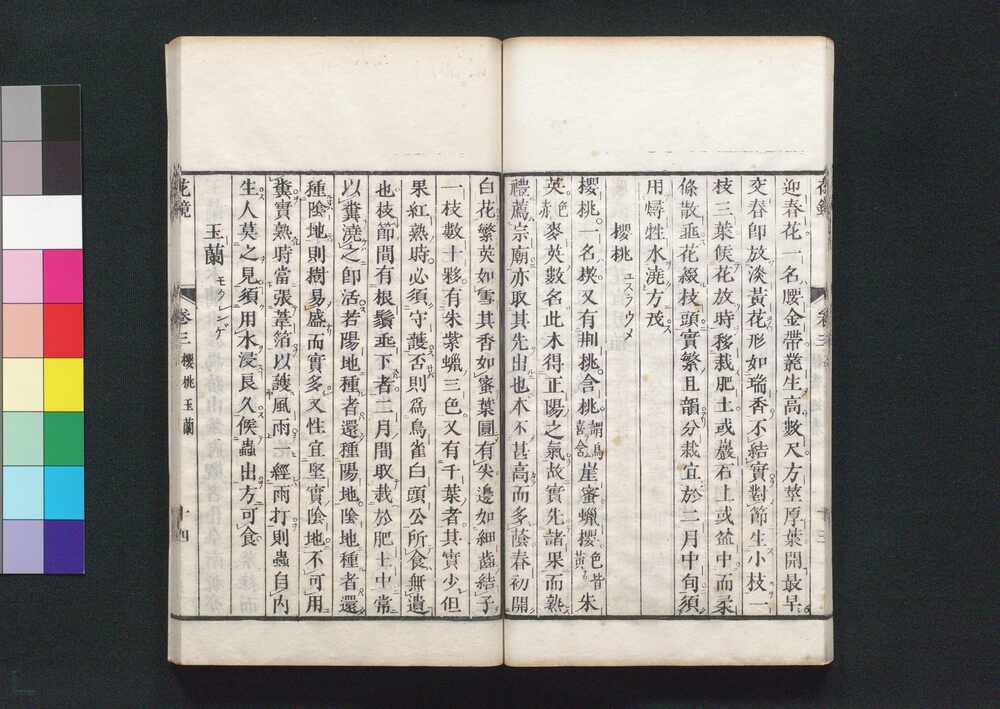 迎春花一名腰金帶叢生高數尺方莖厚葉開最早
交春卽放淡黃花形如瑞香不結實對節生小枝一
枝三葉候花放時移栽肥土或巖石上或盆中而柔
條散垂花綴枝頭實繁且韻分栽宜於二月中旬須
用燖牲水澆方茂
櫻桃 ユスラウメ
櫻桃一名楔又有荆桃含桃謂鳥喜含崖蜜蠟櫻色黃朱
英色赤麥英數名此木得正陽之氣故實先諸果而熟
禮薦宗廟亦取其先出也木不甚高而多蔭春初開
白花繁英如雪其香如蜜葉圓有尖邊如細齒結子
一枝數十夥有朱紫蠟三色又有千葉者其實少但
果紅熟時必須守護否則爲鳥雀白頭公所食無遺
也枝節間有根鬚垂下者二月間取栽於肥土中常
以糞澆之卽活若陽地種者還種陽地陰地種者還
種陰地則樹易盛而實多又性宜堅實陰地不可用
糞實熟時當張葦箔以護風雨一經雨打則蟲自內
生人莫之見須用水浸良久候蟲出方可食
玉蘭 モクレンゲ
花鏡 卷三 櫻桃 玉蘭 十四